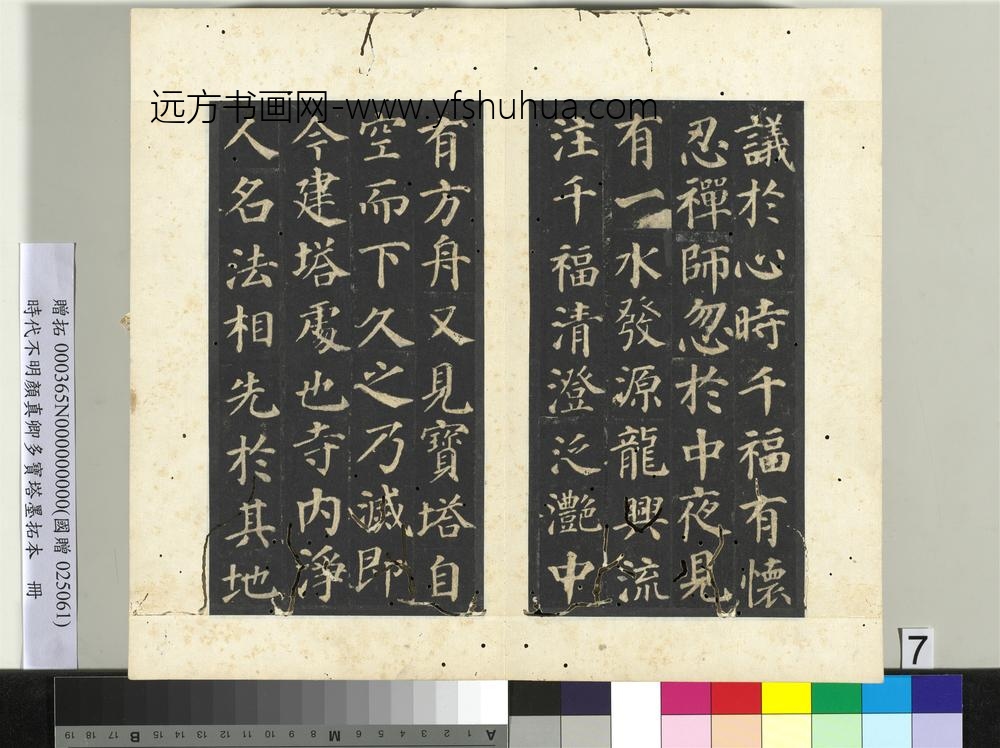 远方书画网-www.yfshuhua.com
議於心時千福有懐
忍禪師忽於中夜見
有一水發源龍興流
注千福清澄泛灔中
有方舟又見寶塔自
空而下久之乃滅即
今建塔處也寺内淨
人名法相先於其地
贈拓 000365N000000000(國贈 025061)
時代不明顏真卿多寶塔墨拓本 冊
7
A 1 2 3 4 5 6 M 8 9 10 11 12 13 14 15 B 17 18 19